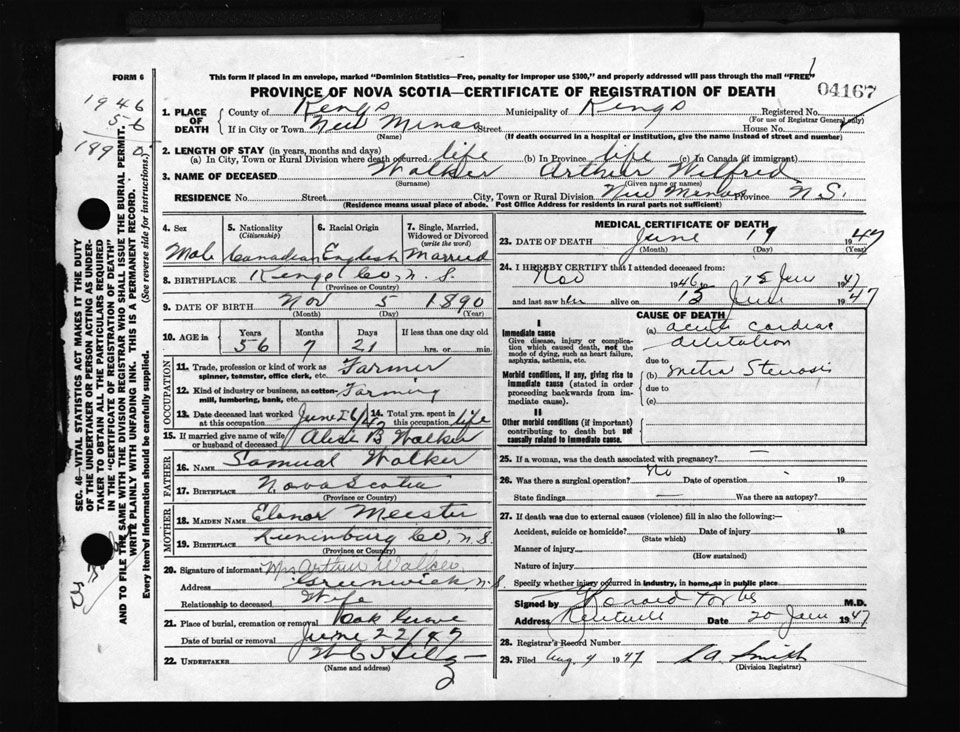 FORM 6
This form if placed in an envelope, marked "Dominion Statistics—Free, penalty for improper use $300," and properly addressed will pass through the mail "FREE"
PROVINCE OF NOVA SCOTIA—CERTIFICATE OF REGISTRATION OF DEATH
04167
1946
5-6
1890
1. PLACE OF DEATH
County of Kings Municipality of Kings Registered No.
(For use of Registrar General only)
If in City or Town New Minas Street House No.
(Name) (If death occurred in a hospital or institution, give the name instead of street and number)
2. LENGTH OF STAY (in years, months and days)
(a) In City, Town or Rural Division where death occurred life (b) In Province life (c) In Canada (if immigrant)
3. NAME OF DECEASED Walker Arthur Wilfred
(Surname) (Given name or names)
RESIDENCE No. Street City, Town or Rural Division New Minas Province N.S.
(Residence means usual place of abode. Post Office Address for residents in rural parts not sufficient)
SEC. 46—VITAL STATISTICS ACT MAKES IT THE DUTY
OF THE UNDERTAKER OR PERSON ACTING AS UNDER-
TAKER TO OBTAIN ALL THE PARTICULARS REQUIRED
IN THE "CERTIFICATE OF REGISTRATION OF DEATH"
AND TO FILE THE SAME WITH THE DIVISION REGISTRAR WHO SHALL ISSUE THE BURIAL PERMIT.
WRITE PLAINLY WITH UNFADING INK. THIS IS A PERMANENT RECORD.
Every item of information should be carefully supplied. (See reverse side for instructions.)
4. Sex 5. Nationality (Citizenship) 6. Racial Origin 7. Single, Married, Widowed or Divorced (write the word)
Male Canadian English Married
8. BIRTHPLACE Kings Co, N.S.
(Province or Country)
9. DATE OF BIRTH Nov 5 1890
(Month) (Day) (Year)
10. AGE in Years Months Days If less than one day old
56 7 21 hrs. or min.
OCCUPATION
11. Trade, profession or kind of work as spinner, teamster, office clerk, etc. Farmer
12. Kind of industry or business, as cotton-mill, lumbering, bank, etc. Farming
13. Date deceased last worked at this occupation June 14. Total yrs. spent in this occupation life
15. If married give name of wife or husband of deceased Alice B Walker
FATHER
16. NAME Samual Walker
17. BIRTHPLACE Nova Scotia
(Province or Country)
MOTHER
18. MAIDEN NAME Elanor Meester
19. BIRTHPLACE Lunenburg Co, N.S.
(Province or Country)
20. Signature of informant Mrs Arthur Walker
Address Greenwich, N.S.
Relationship to deceased Wife
21. Place of burial, cremation or removal Oak Grove
Date of burial or removal June 22/47
22. UNDERTAKER
(Name and address)
MEDICAL CERTIFICATE OF DEATH
23. DATE OF DEATH June 19 1947
(Month) (Day) (Year)
24. I HEREBY CERTIFY that I attended deceased from:
Nov 1946 to 15 June 1947
and last saw him alive on 15 June 1947
CAUSE OF DEATH
I
Immediate cause
Give disease, injury or complica-
tion which caused death, not the
mode of dying, such as heart failure,
asphyxia, asthenia, etc.
(a) acute cardiac
dilitation
due to
Morbid conditions, if any, giving rise to
immediate cause (stated in order
proceeding backwards from im-
mediate cause).
(b) Mitral Stenosis
due to
(c)
II
Other morbid conditions (if important)
contributing to death but not
causally related to immediate cause.
25. If a woman, was the death associated with pregnancy? —
26. Was there a surgical operation? No Date of operation 19
State findings — Was there an autopsy?
27. If death was due to external causes (violence) fill in also the following:—
Accident, suicide or homicide? Date of injury 19
(State which)
Manner of injury
(How sustained)
Nature of injury
Specify whether injury occurred in industry, in home, or in public place
Signed by Forbes M.D.
Address Kentville Date 20 June 1947
28. Registrar's Record Number
29. Filed Aug 4 1947 Smith
(Division Registrar)